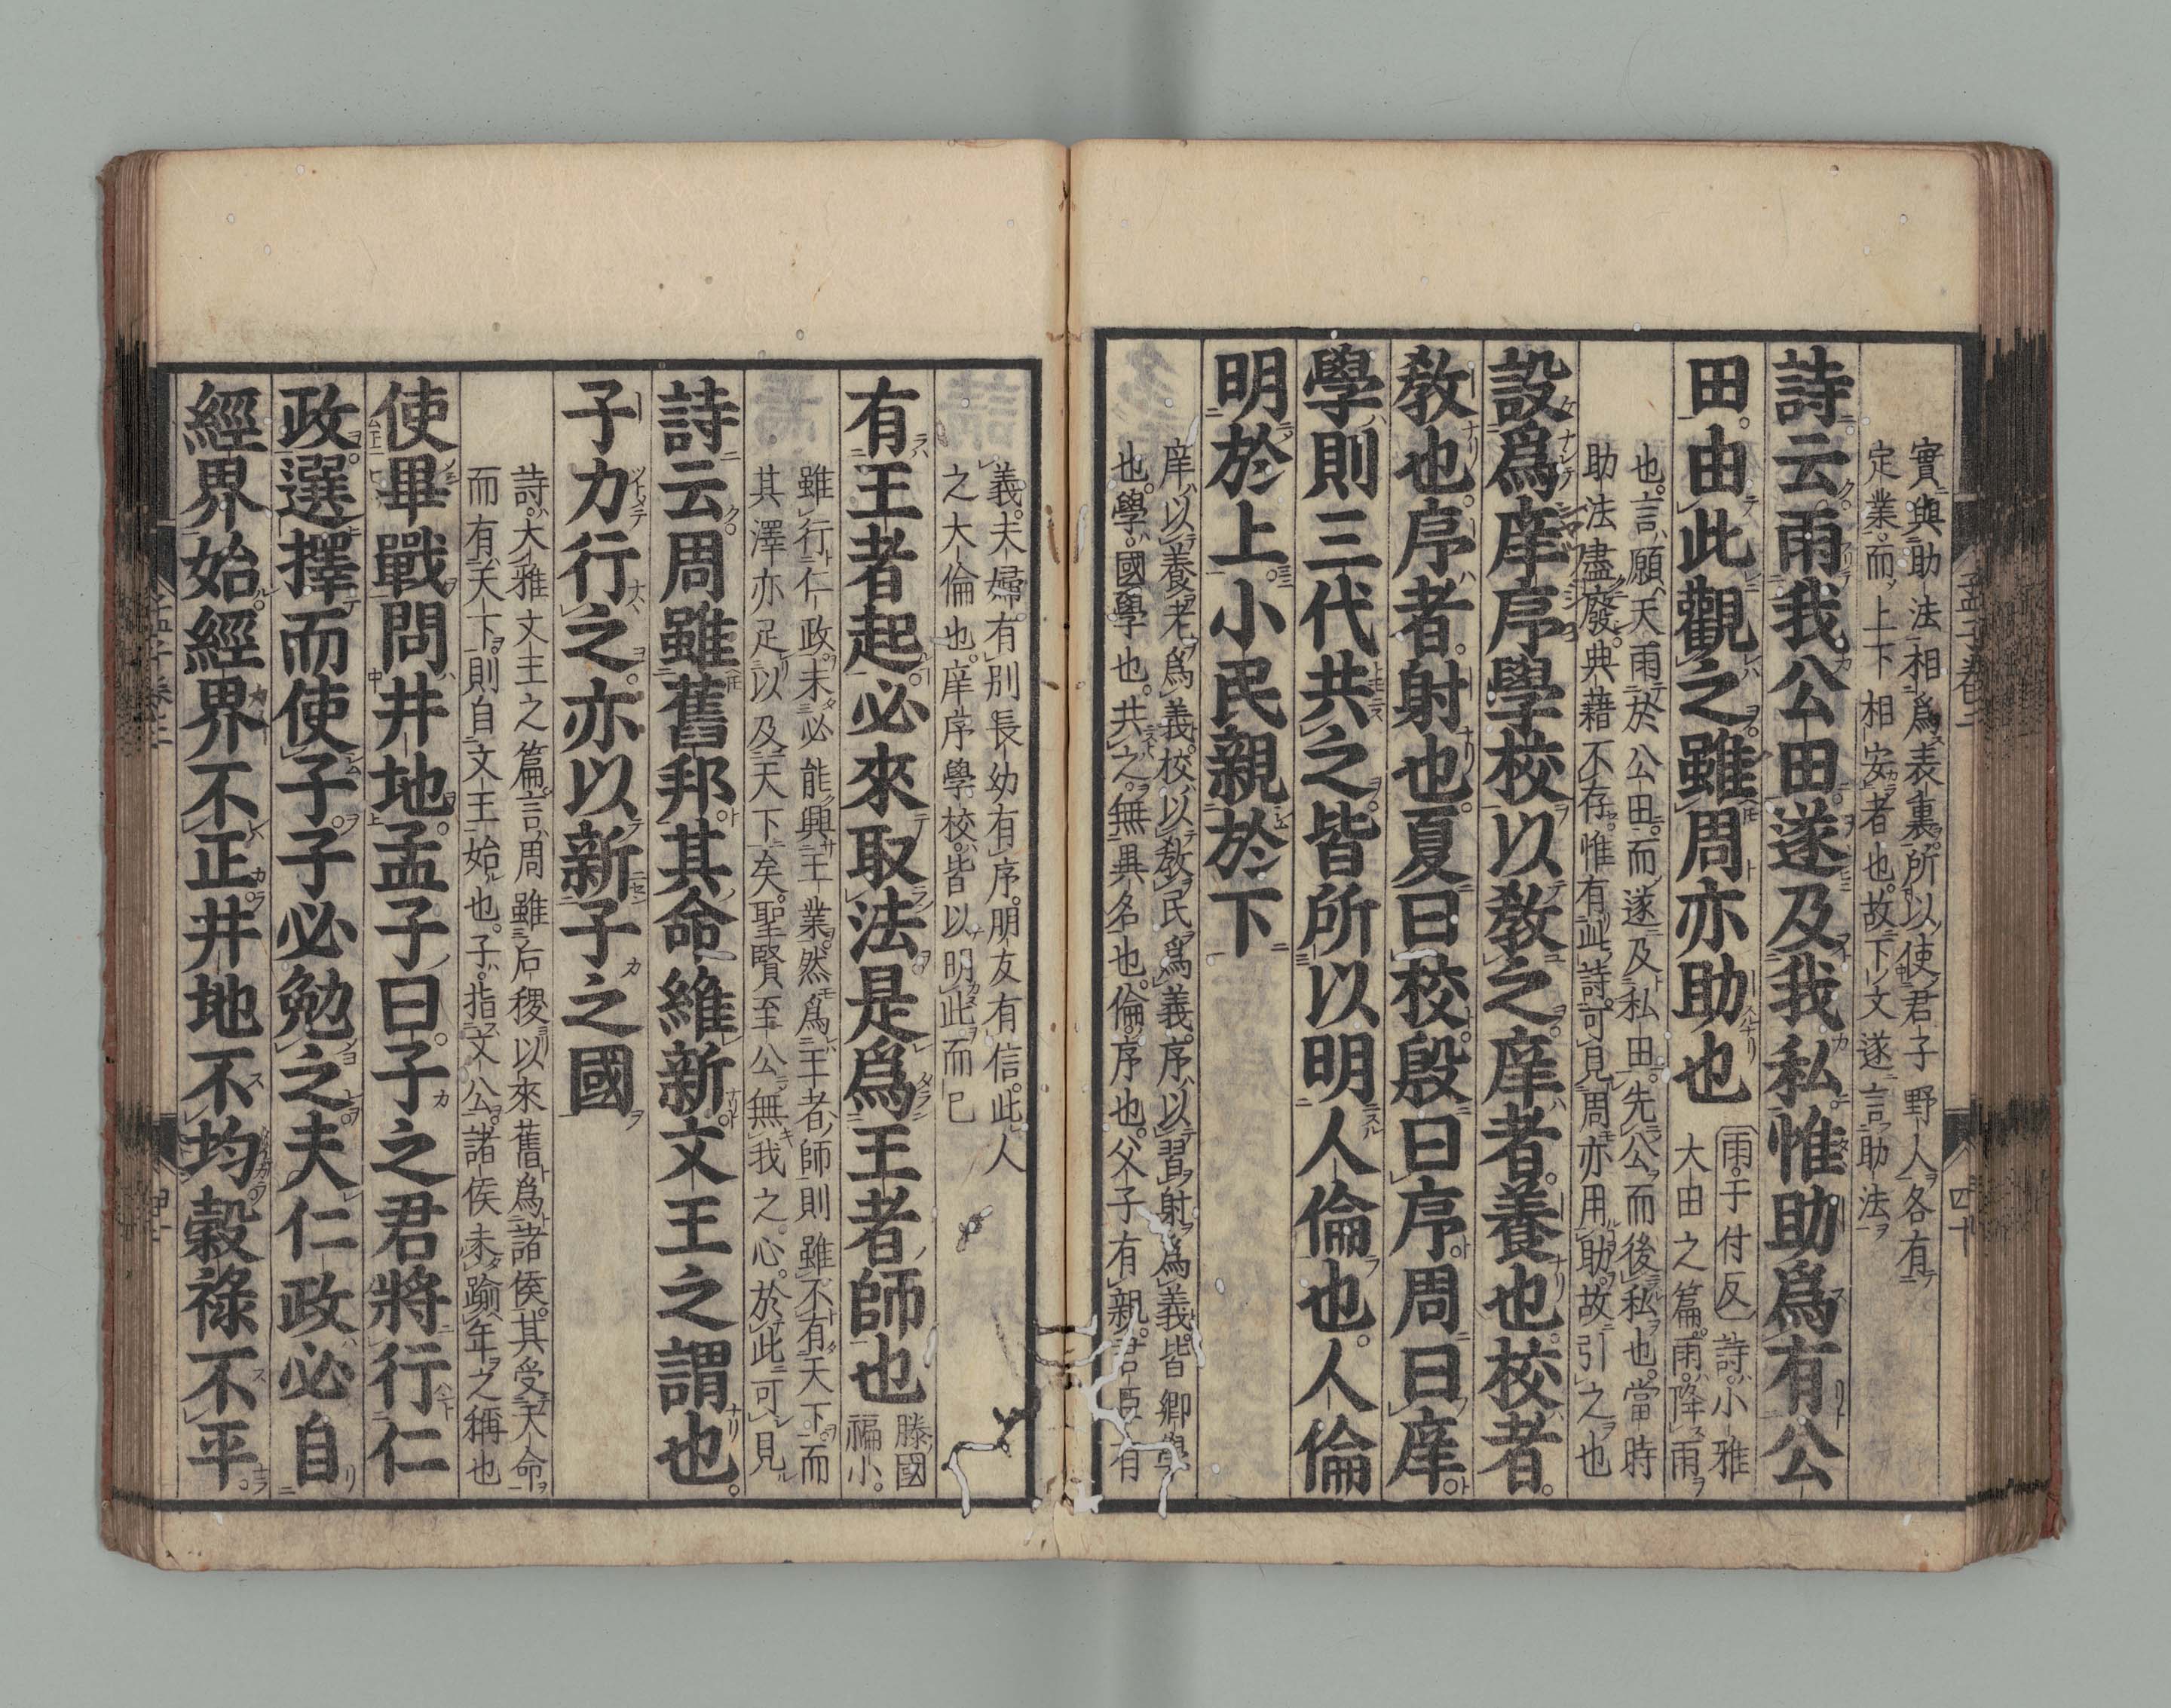 實與助法相爲表裏所以使君子野人各有
定業而上下相安者也故下文遂言助法
詩云雨我公田遂及我私惟助爲有公
田由此觀之雖周亦助也
雨于付反 詩小雅
大田之篇雨降雨
也言願天雨於公田而遂及私田先公而後私也當時
助法盡廢典藉不存惟有此詩可見周亦用助故引之也
設爲庠序學校以敎之庠者養也校者
敎也序者射也夏曰校殷曰序周曰庠
學則三代共之皆所以明人倫也人倫
明於上小民親於下
庠以養老爲義校以敎民爲義序以習射爲義皆鄉學
也學國學也共之無異名也倫序也父子有親君臣有
義夫婦有別長幼有序朋友有信此人
之大倫也庠序學校皆以明此而已
有王者起必來取法是爲王者師也
滕國
褊小
雖行仁政未必能興王業然爲王者師則雖不有天下而
其澤亦足以及天下矣聖賢至公無我之心於此可見
詩云周雖舊邦其命維新文王之謂也
子力行之亦以新子之國
詩大雅文王之篇言周雖后稷以來舊爲諸侯其受天命
而有天下則自文王始也子指文公諸侯未踰年之稱也
使畢戰問井地孟子曰子之君將行仁
政選擇而使子子必勉之夫仁政必自
經界始經界不正井地不均穀祿不平
孟子卷三
四十